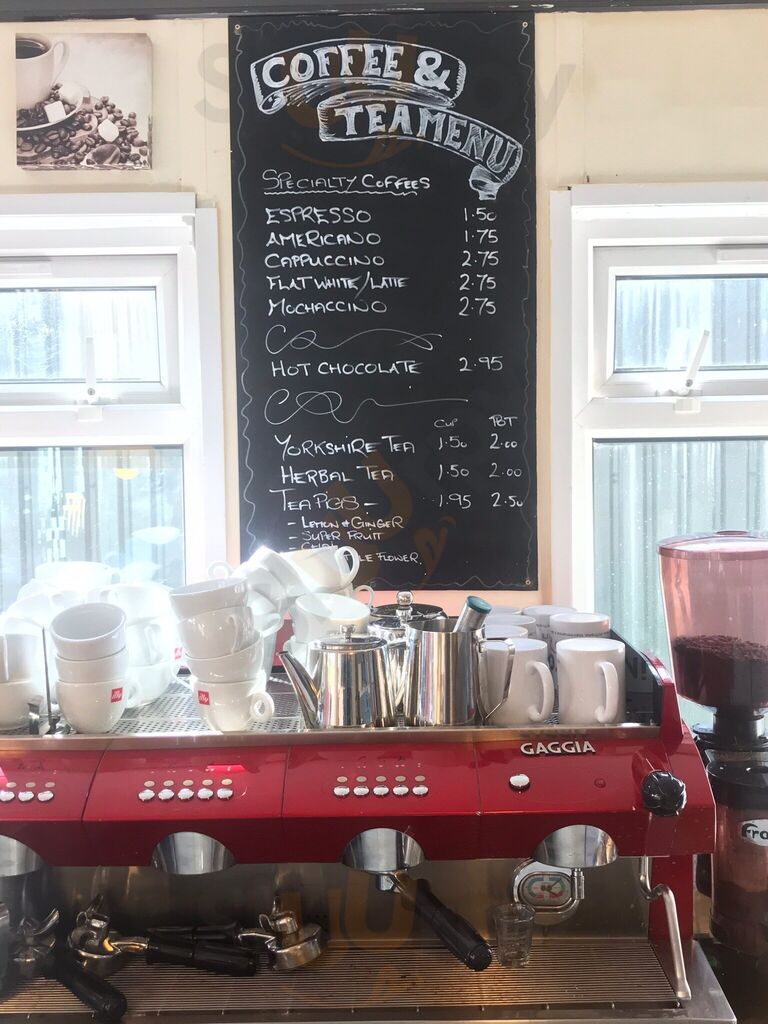 COFFEE &
TEA MENU
SPECIALTY COFFEES
ESPRESSO 1.50
AMERICANO 1.75
CAPPUCCINO 2.75
FLAT WHITE/LATTE 2.75
MOCHACCINO 2.75
HOT CHOCOLATE 2.95
CUP POT
YORKSHIRE TEA 1.50 2.00
HERBAL TEA 1.50 2.00
TEA PIGS - 1.95 2.50
- LEMON & GINGER
- SUPER FRUIT
FLOWER.
illy
illy
GAGGIA
Fra